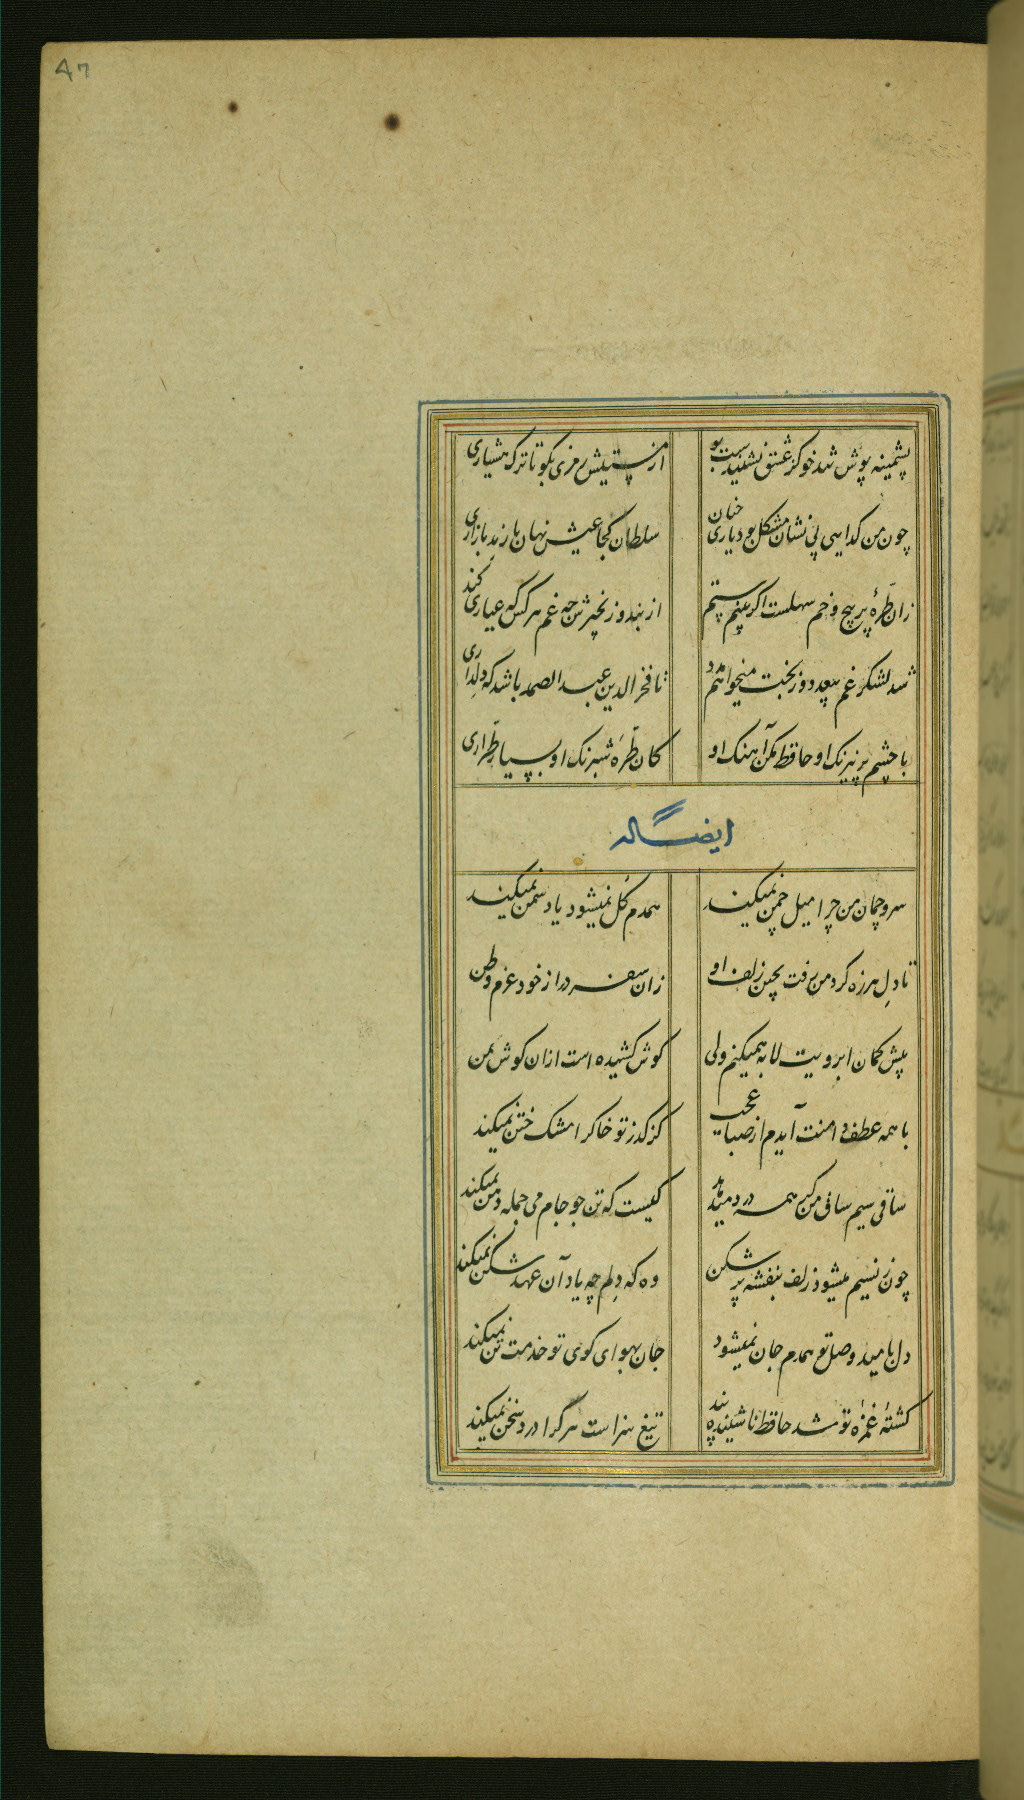 47
پشمینه پوش تند خو کز عشق نشنیدست بو از مستیش رمزی بگو تا ترک هشیاری
چون من گدایی بی نشان مشکل بود یاری چنان سلطان کجا عیش نهان با رند بازاری
زان طرهٔ پر پیچ و خم سهلست اگر بینم ستم از بند و زنجیرش چه غم هر کس که عیاری کند
شد لشکر غم بیعدد وز بخت میخواهم مدد تا فخر الدین عبد الصمد باشد که دلداری
با چشم پر نیرنک او حافظ مکن آهنک او کان طرّهٔ شبرنک او بسیار طرّاری
ایضاً له
سرو چمان من چرا میل چمن نمیکند همدم گل نمیشود یاد سمن نمیکند
تا دل هرزه کرد من رفت بچین زلف او زان سفر دراز خود عزم وطن
پیش کمان ابرویت لابه همیکنم ولی گوش کشیده است ازان گوش بمن
با همه عطف دامنت آیدم از صبا عجب کز گذر تو خاکرا مشک ختن نمیکند
ساقی سیم ساق من گر همه درد میدهد کیست که تن چو جام می جمله دهن نمیکند
چون ز نسیم میشود زلف بنفشه پر شکن وه که دلم چه یاد آن عهد شکن نمیکند
دل بامید وصل تو همدم جان نمیشود جان بهوای کوی تو خدمت تن نمیکند
کشتهٔ غمزهٔ تو شد حافظ ناشنیده پند تیغ سزاست هر کرا درد سخن نمیکند